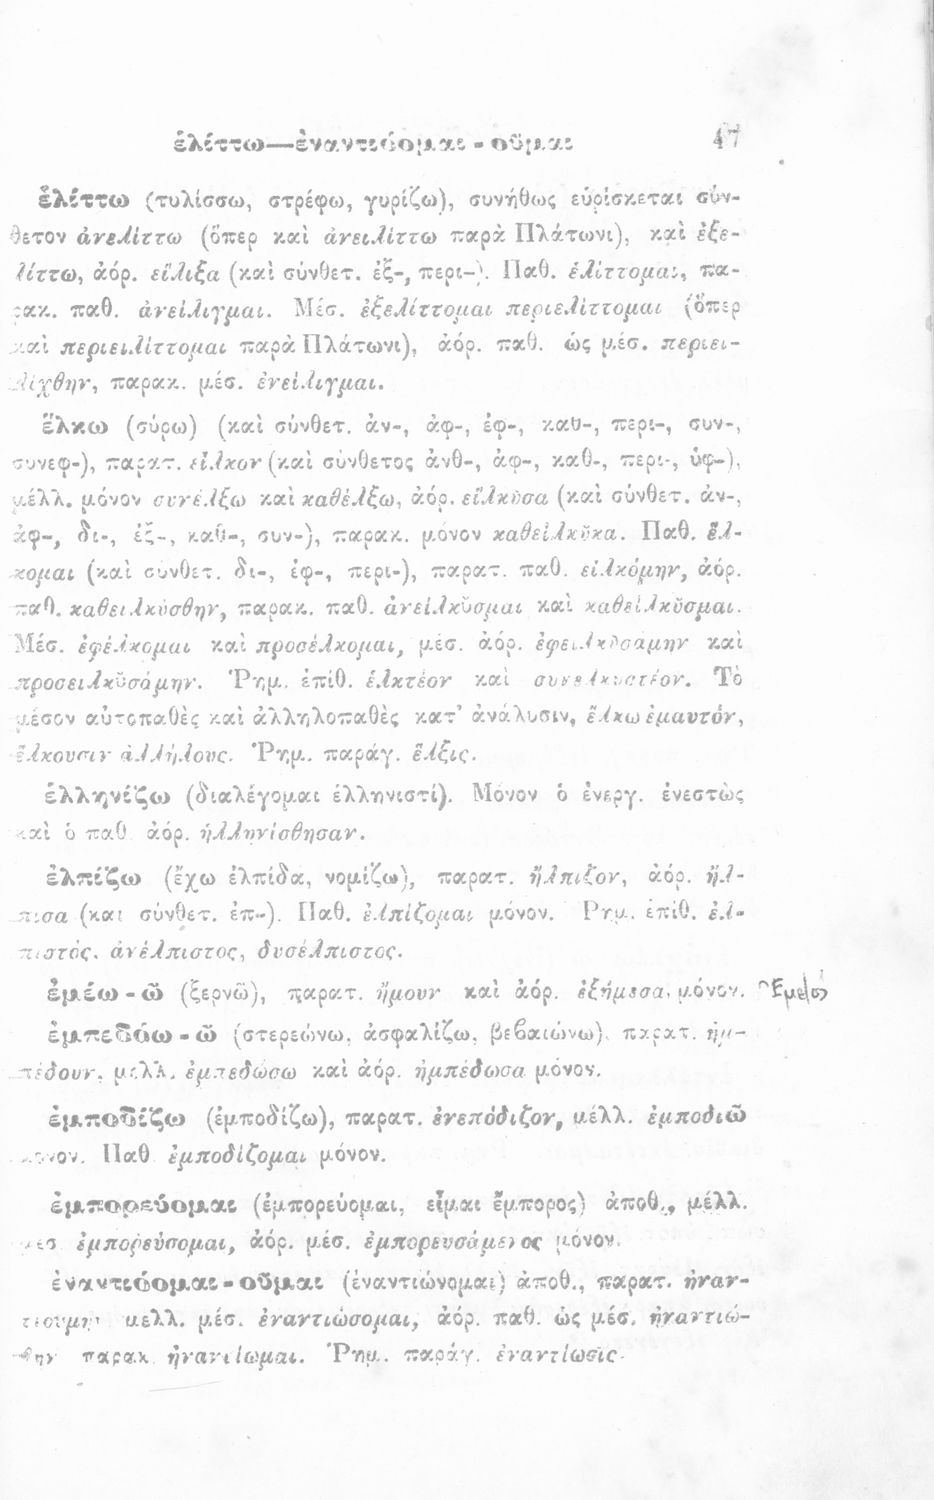 ἑλίττω—ἐναντιόομαι - οῦμαι 47
ἑλίττω (τυλίσσω, στρέφω, γυρίζω), συνήθως εὑρίσκεται σύν-
θετον ἀνελίττω (ὅπερ καὶ ἀνειλίττω παρὰ Πλάτωνι), καὶ ἐξε-
λίττω, ἀόρ. εἵλιξα (καὶ σύνθετ. ἐξ-, περι-). Παθ. ἑλίττομαι, πα-
ρακ. παθ. ἀνείλιγμαι. Μέσ. ἐξελίττομαι περιελίττομαι (ὅπερ
καὶ περιειλίττομαι παρὰ Πλάτωνι), ἀόρ. παθ. ὡς μέσ. περιει-
λίχθην, παρακ. μέσ. ἐνείλιγμαι.
ἕλκω (σύρω) (καὶ σύνθετ. ἀν-, ἀφ-, ἐφ-, καθ-, περι-, συν-,
συνεφ-), παρατ. εἷλκον (καὶ σύνθετος ἀνθ-, ἀφ-, καθ-, περι-, ὑφ-),
μέλλ. μόνον συνέλξω καὶ καθέλξω, ἀόρ. εἵλκυσα (καὶ σύνθετ. ἀν-,
ἀφ-, δι-, ἐξ-, καθ-, συν-), παρακ. μόνον καθείλκῠκα. Παθ. ἕλ-
κομαι (καὶ σύνθετ. δι-, ἐφ-, περι-), παρατ. παθ. εἱλκόμην, ἀόρ.
παθ. καθειλκύσθην, παρακ. παθ. ἀνείλκῠσμαι καὶ καθείλκῠσμαι.
Μέσ. ἐφέλκομαι καὶ προσέλκομαι, μέσ. ἀόρ. ἐφειλκυσάμην καὶ
προσειλκῠσάμην. Ῥημ. ἐπίθ. ἑλκτέον καὶ συνελκυστέον. Τὸ
μέσον αὐτοπαθὲς καὶ ἀλληλοπαθὲς κατ' ἀνάλυσιν, ἕλκω ἐμαυτόν,
ἕλκουσιν ἀλλήλους. Ῥημ. παράγ. ἕλξις.
ἑλληνίζω (διαλέγομαι ἑλληνιστί). Μόνον ὁ ἐνεργ. ἐνεστὼς
καὶ ὁ παθ. ἀόρ. ἡλληνίσθησαν.
ἐλπίζω (ἔχω ἐλπίδα, νομίζω), παρατ. ἤλπιζον, ἀόρ. ἤλ-
πισα (καὶ σύνθετ. ἐπ-). Παθ. ἐλπίζομαι μόνον. Ῥημ. ἐπίθ. ἐλ-
πιστός, ἀνέλπιστος, δυσέλπιστος.
ἐμέω - ῶ (ξερνῶ), παρατ. ἤμουν καὶ ἀόρ. ἐξήμεσα, μόνον.
ἐμπεδόω - ῶ (στερεώνω, ἀσφαλίζω, βεβαιώνω), παρατ. ἠμ-
πέδουν, μέλλ. ἐμπεδώσω καὶ ἀόρ. ἠμπέδωσα μόνον.
ἐμποδίζω (ἐμποδίζω), παρατ. ἐνεπόδιζον, μέλλ. ἐμποδιῶ
μόνον. Παθ. ἐμποδίζομαι μόνον.
ἐμπορεύομαι (ἐμπορεύομαι, εἶμαι ἔμπορος) ἀποθ., μέλλ.
μέσ. ἐμπορεύσομαι, ἀόρ. μέσ. ἐμπορευσάμενος μόνον.
ἐναντιόομαι - οῦμαι (ἐναντιώνομαι) ἀποθ., παρατ. ἠναν-
τιούμην μέλλ. μέσ. ἐναντιώσομαι, ἀόρ. παθ. ὡς μέσ. ἠναντιώ-
θην παρακ. ἠναντίωμαι. Ῥημ. παράγ. ἐναντίωσις.